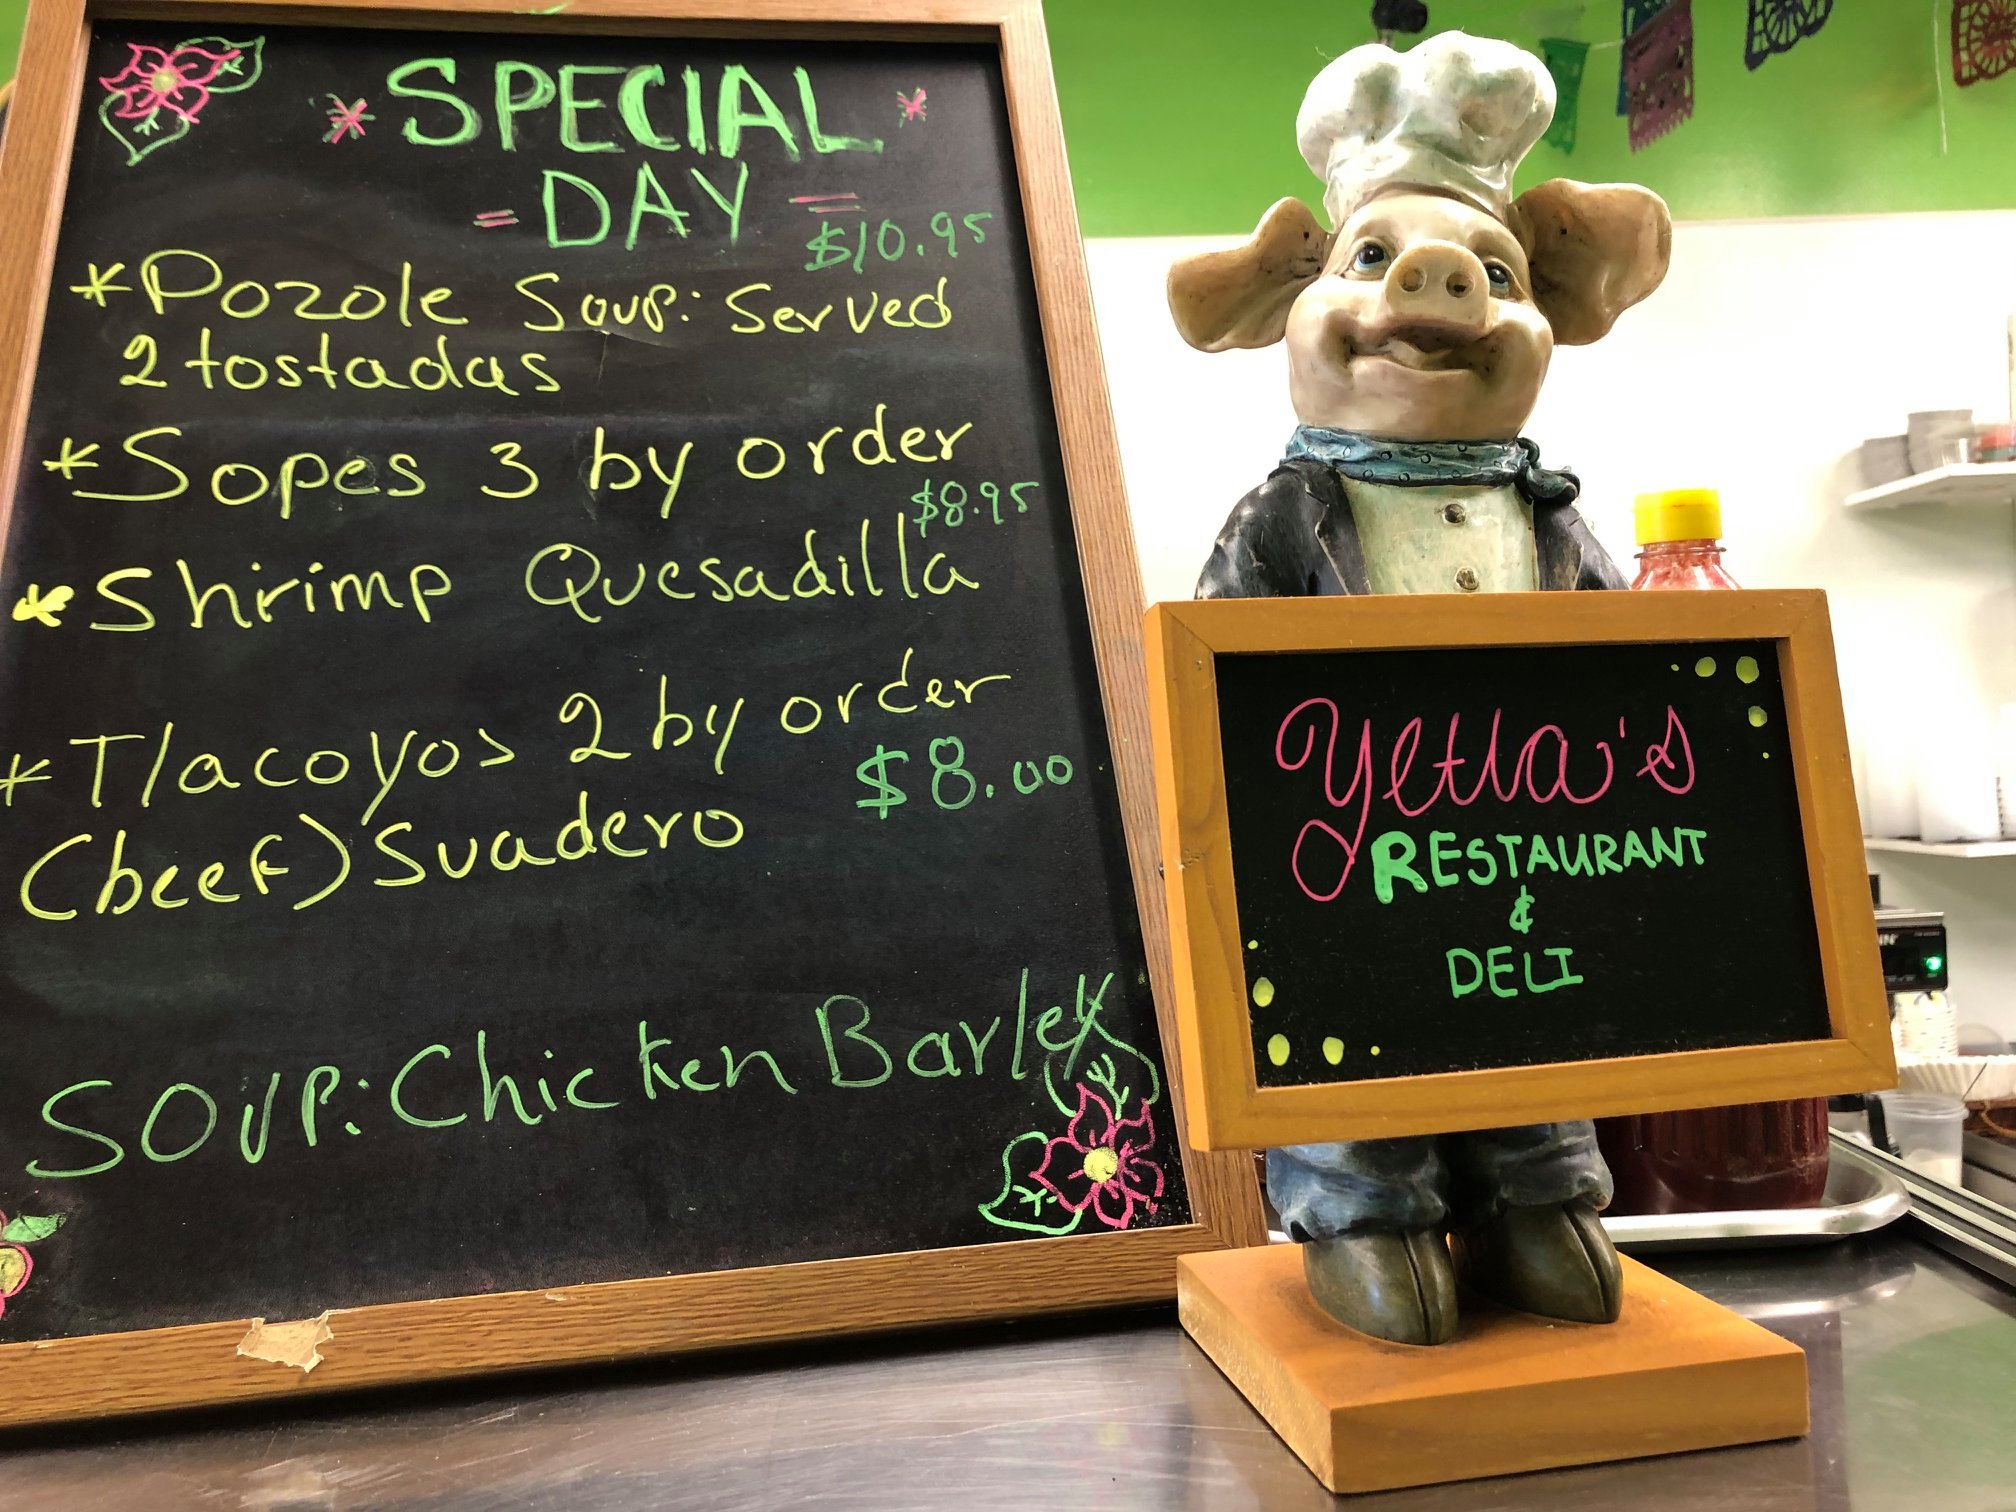 * SPECIAL *
= DAY =
$10.95
* Pozole Soup: Served
2 tostadas
* Sopes 3 by order
$8.95
* Shrimp Quesadilla
* Tlacoyos 2 by order
$8.00
(beef) Suadero
SOUP: Chicken Barley
Yetla's
RESTAURANT
&
DELI